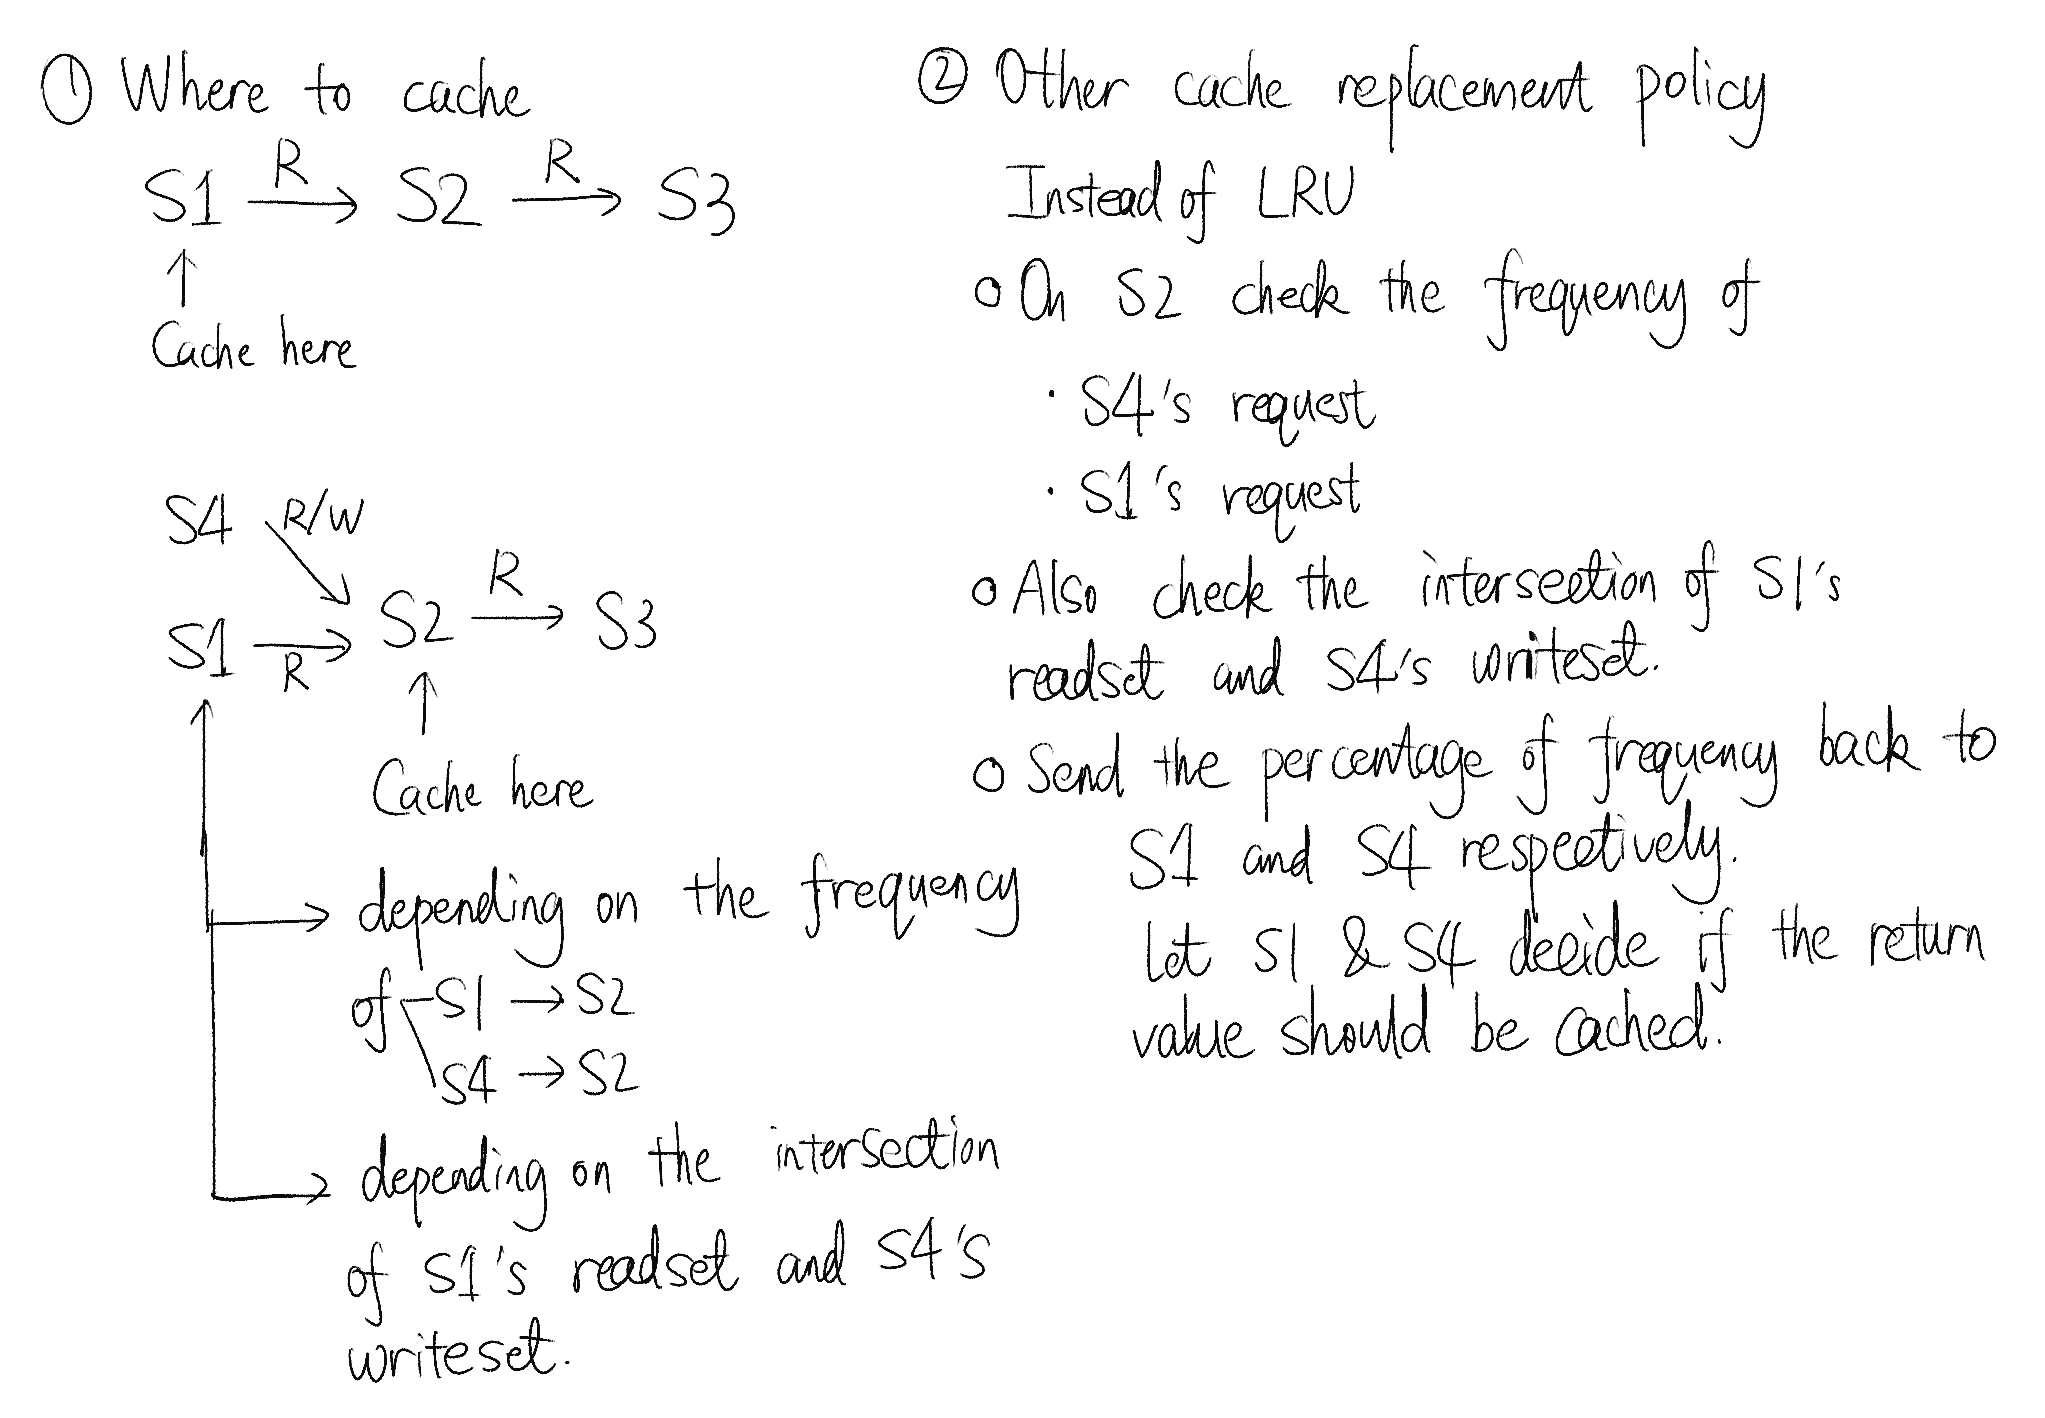 ① Where to cache
S1 R→ S2 R→ S3
↑
Cache here
S4 R/W
S1 R→ S2 R→ S3
↑
Cache here
→ depending on the frequency
of S1 → S2
S4 → S2
→ depending on the intersection
of S1's readset and S4's
writeset.
② Other cache replacement policy
Instead of LRU
o On S2 check the frequency of
· S4's request
· S1's request
o Also check the intersection of S1's
readset and S4's writeset.
o Send the percentage of frequency back to
S1 and S4 respectively.
Let S1 & S4 decide if the return
value should be cached.